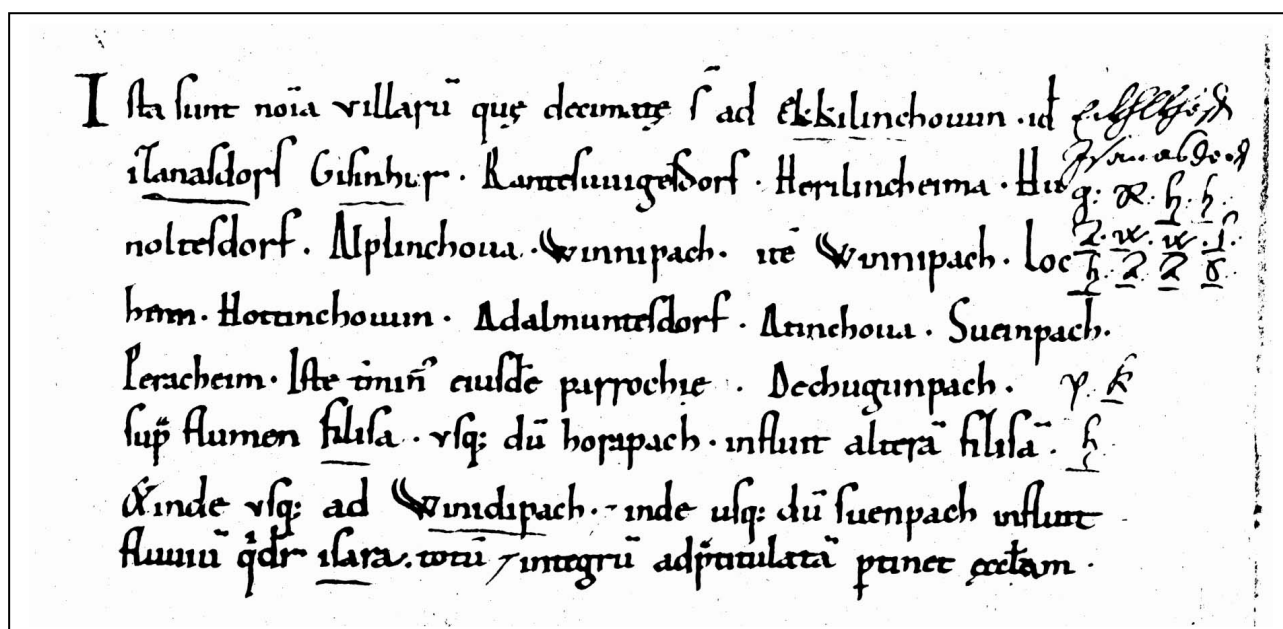 Ista sunt noīa villarū quę decimatę s̄ ad ekkilinchouun · id
isanasdorf Gisinhur · Rantesuuigesdorf · Herilincheima · Hu
noltesdorf · Alplinchoua · Winnipach · itē Winnipach · Loc
heim · Hottinchouun · Adalmuntesdorf · Atinchoua · Sueinpach ·
Peracheim · Iste tminꝰ eiusdē parrochie · Dechuguupach ·
sup̄ flumen filisa · vsq; dū horapach · influit alterā filisā ·
&inde vsq; ad Winidipach · inde usq; dū suenpach influit
fluuiū q̇dr̄ isara · totū integrū adp̄titulatā ptinet ęccłam ·